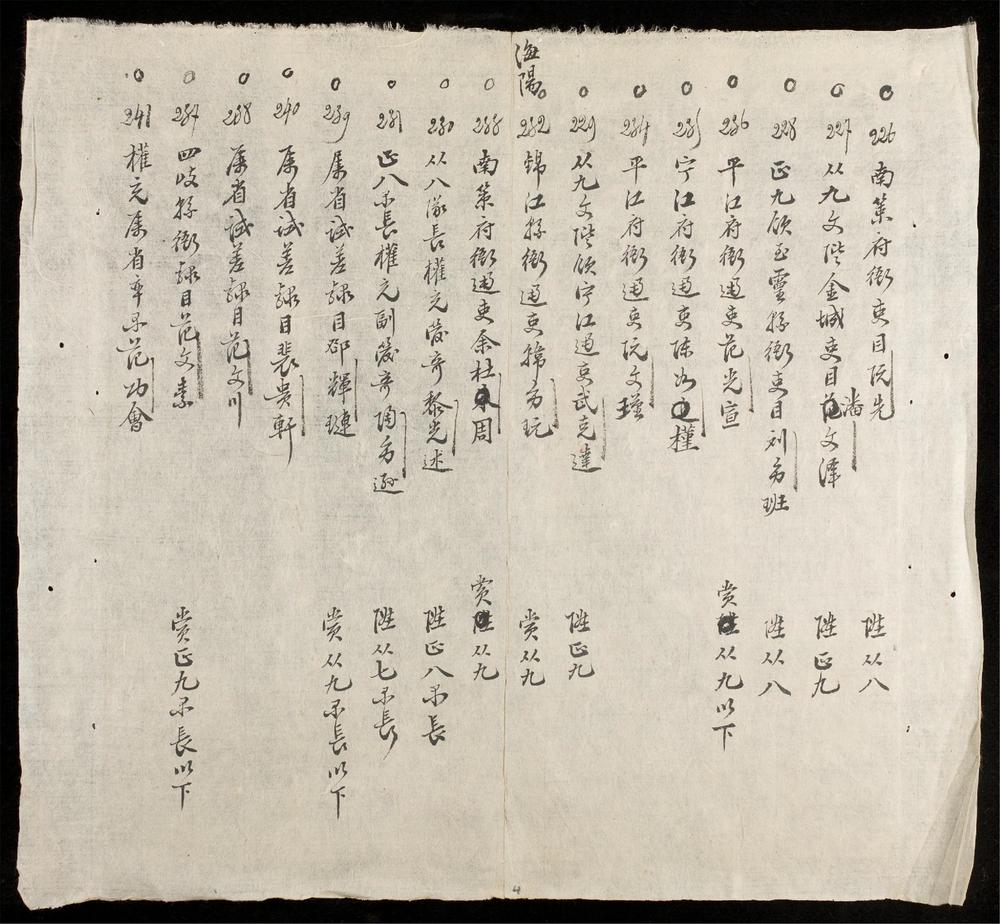 226 南策府衙吏目阮先 陞从八
227 从九文階金城吏目潘文澤 陞正九
228 正九領至靈縣衙吏目刘方班 陞从八
236 平江府衙通吏范光宣 賞从九以下
235 宁江府衙通吏陳 權
234 平江府衙通吏阮文瑾
229 从九文階領宁江通吏武克達 陞正九
海陽
232 錦江縣衙通吏韓方玩 賞从九
233 南策府衙通吏余杜周 賞从九
230 从八隊長權充 奇黎光述 陞正八品長
231 正八品長權充副 奇陶方遜 陞从七品長
239 属省試差隸目邵輝璉 賞从九品長以下
240 属省試差隸目裴貴軒
238 属省試差隸目范文川
237 四岐縣衙隸目范文素 賞正九品長以下
241 權充属省率品范功會
4